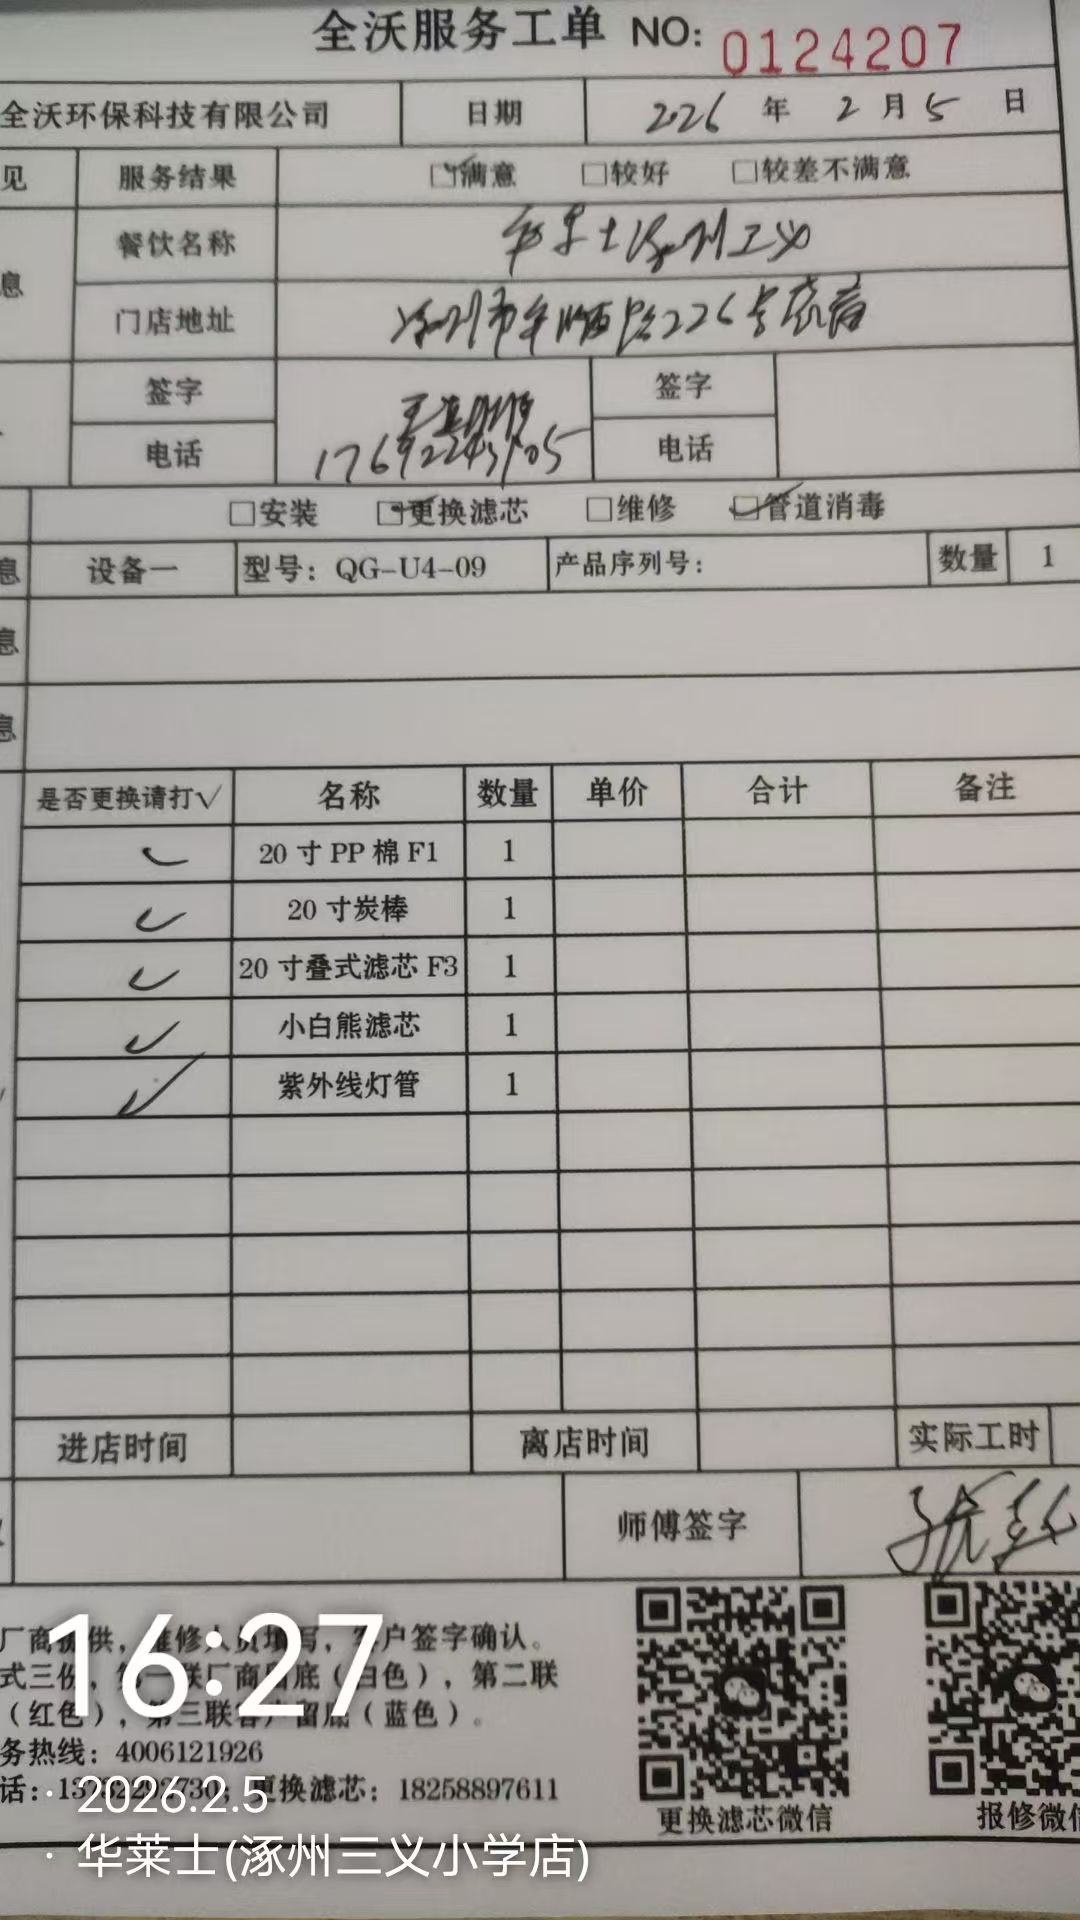 全沃服务工单 NO: 0124207
全沃环保科技有限公司 日期 2026 年 2 月 5 日
见 服务结果 满意 □较好 □较差不满意
餐饮名称 华莱士涿州三义
息
门店地址 涿州市 路226号
签字 签字
电话 电话
□安装 更换滤芯 □维修 管道消毒
息 设备一 型号：QG-U4-09 产品序列号： 数量 1
息
息
是否更换请打√ 名称 数量 单价 合计 备注
✓ 20寸PP棉F1 1
✓ 20寸炭棒 1
✓ 20寸叠式滤芯F3 1
✓ 小白熊滤芯 1
✓ 紫外线灯管 1
进店时间 离店时间 实际工时
师傅签字
厂商提供，维修人员填写，客户签字确认。
式三份，第一联厂商留底（白色），第二联
（红色），第三联客户留底（蓝色）。
务热线：4006121926
话： 更换滤芯：18258897611
更换滤芯微信 报修微信
16:27
2026.2.5
华莱士(涿州三义小学店)